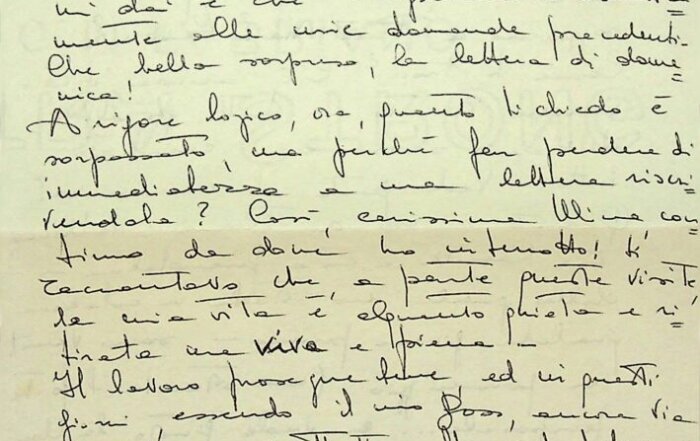 mi dai e che
mente alle mie domande precedenti.
Che bella sorpresa, la lettera di dome=
nica!
A rigore logico, ora, quanto ti chiedo è
sorpassato, ma perché far perdere di
immediatezza a una lettera riscri=
vendola? Così, carissima Mima, con=
tinuo da dove ho interrotto! ti
raccontavo che, a parte queste visite
la mia vita è alquanto quieta e ri=
tirata ma viva e piena -
Il lavoro prosegue bene ed in questi
giorni essendo il mio Boss, ancora via